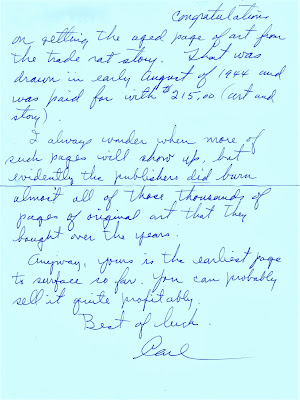 congratulations
on getting the aged page of art from
the trade rat story. That was
drawn in early August of 1944 and
was paid for with $215.00 (art and
story).
I always wonder when more of
such pages will show up, but
evidently the publishers did burn
almost all of those thousands of
pages of original art that they
bought over the years.
Anyway, yours is the earliest page
to surface so far. You can probably
sell it quite profitably.
Best of luck.
Carl